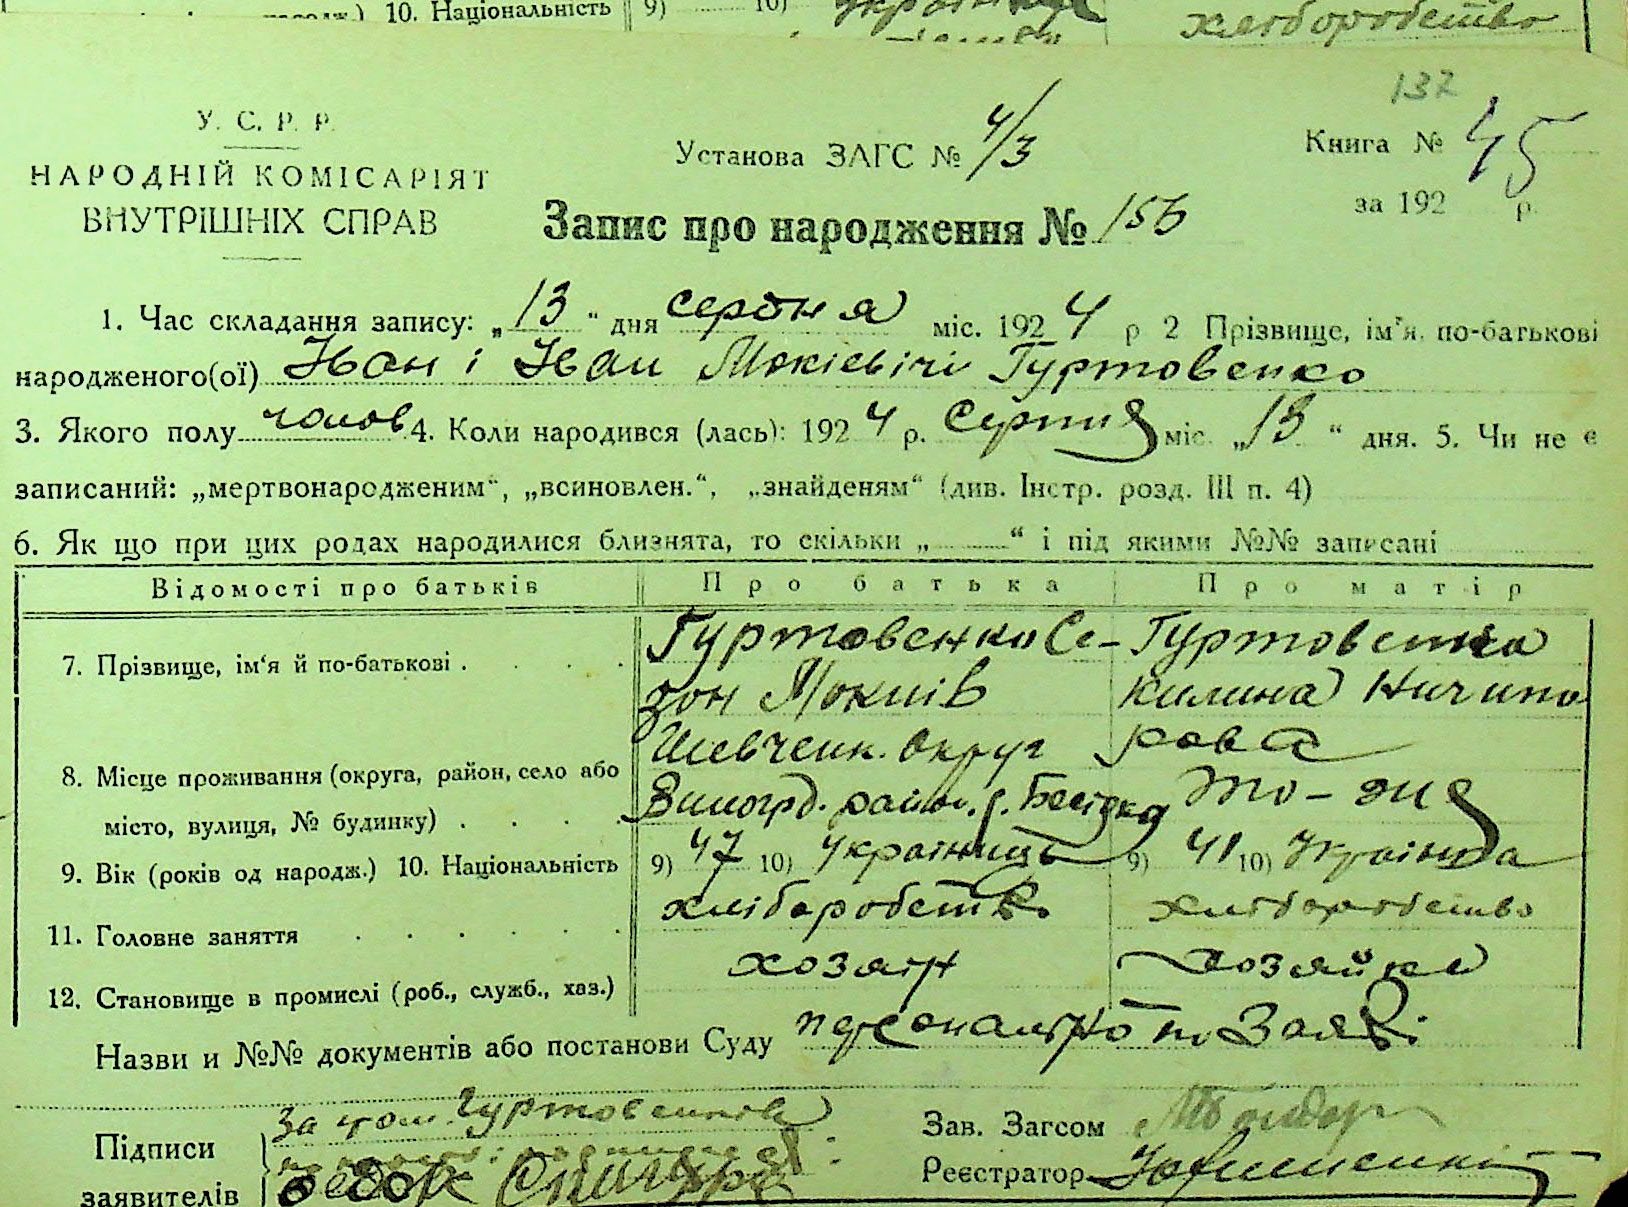 10. Національність 9) 10) хліборобство
137
У. С. Р. Р.
НАРОДНІЙ КОМІСАРІЯТ
ВНУТРІШНІХ СПРАВ
Установа ЗАГС № 4/3
Книга № 45
за 192 р.
Запис про народження № 156
1. Час складання запису: „13“ дня серпня міс. 1924 р 2 Прізвище, ім'я, по-батькові
народженого(ої) Іван і Іван Мокієвічі Гуртовенко
3. Якого полу чолов 4. Коли народився (лась): 1924 р. Серпня міс. „13“ дня. 5. Чи не є
записаний: „мертвонародженим“, „всиновлен.“, „знайденям“ (див. Інстр. розд. III п. 4)
6. Як що при цих родах народилися близнята, то скільки „ “ і під якими №№ записані
Відомості про батьків Про батька Про матір
7. Прізвище, ім'я й по-батькові . . . . Гуртовенко Се- Гуртовенко
зон Мокиів Килина Ничипо
Шевченк. округ рова
8. Місце проживання (округа, район, село або
місто, вулиця, № будинку) . . . . Виногр. район. То-же
9. Вік (років од народж.) 10. Національність 9) 47 10) Українець 9) 41 10) Українка
11. Головне заняття . . . . . . хліборобство хліборобство
12. Становище в промислі (роб., служб., хаз.) хозяін хозяйка
Назви и №№ документів або постанови Суду персонально по Заяві
Підписи
заявителів
За Гуртовенка
Зав. Загсом
Реєстратор